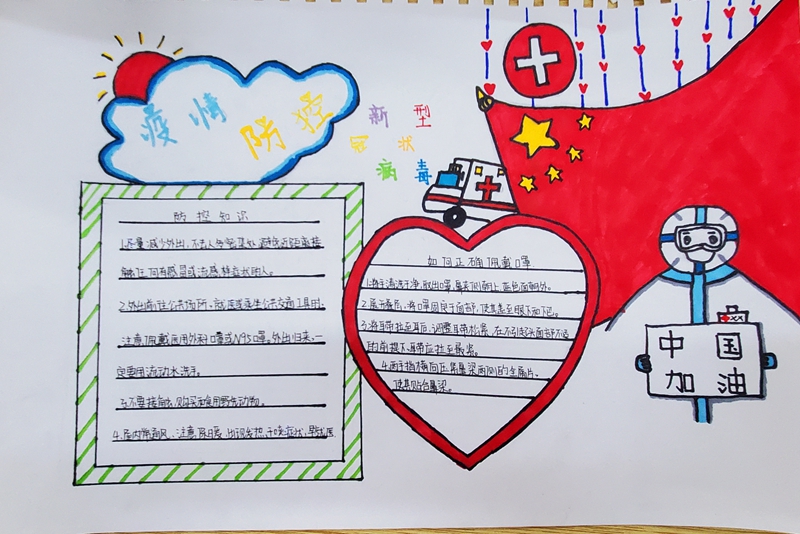 疫情
防控
新型
冠状
病毒
防控知识
1.尽量减少外出,不去人多密集处,避免近距离接
触任何有感冒或流感样症状的人。
2.外出前往公共场所、就医或乘坐公共交通工具时,
注意佩戴医用外科口罩或N95口罩,外出归来,一
定要用流动水洗手。
3.不要接触、购买和食用野生动物。
4.居内常通风、注意保暖、出现发热、干咳症状,
如何正确佩戴口罩
1.将手清洗干净,取出口罩,鼻夹侧朝上,蓝色面朝外。
2.展开褶皱,将口罩固定于面部,使其盖至眼下和下巴。
3.将耳带挂至耳后,调整耳带松紧,在不
的前提下耳带应拉至最紧。
4.两手指横向压紧鼻梁两侧的金属片,
使其贴合鼻梁。
中国
加油